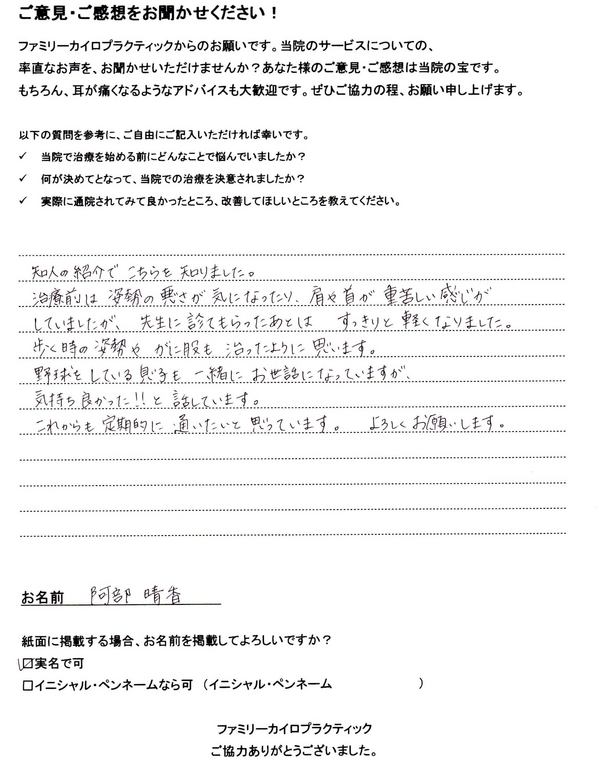 ご意見・ご感想をお聞かせください！
ファミリーカイロプラクティックからのお願いです。当院のサービスについての、
率直なお声を、お聞かせいただけませんか？あなた様のご意見・ご感想は当院の宝です。
もちろん、耳が痛くなるようなアドバイスも大歓迎です。ぜひご協力の程、お願い申し上げます。
以下の質問を参考に、ご自由にご記入いただければ幸いです。
✓ 当院で治療を始める前にどんなことで悩んでいましたか？
✓ 何が決めてとなって、当院での治療を決意されましたか？
✓ 実際に通院されてみて良かったところ、改善してほしいところを教えてください。
知人の紹介で こちらを 知りました。
治療前は 姿勢の悪さが 気になったり、肩や首が 重苦しい感じが
していましたが、先生に診てもらったあとは すっきりと 軽くなりました。
歩く時の姿勢や がに股も 治ったように思います。
野球をしている息子も 一緒に お世話になっていますが、
気持ち良かった!!と話しています。
これからも 定期的に 通いたいと 思っています。 よろしくお願いします。
お名前 阿部 晴香
紙面に掲載する場合、お名前を掲載してよろしいですか？
☑実名で可
□イニシャル・ペンネームなら可 （イニシャル・ペンネーム ）
ファミリーカイロプラクティック
ご協力ありがとうございました。